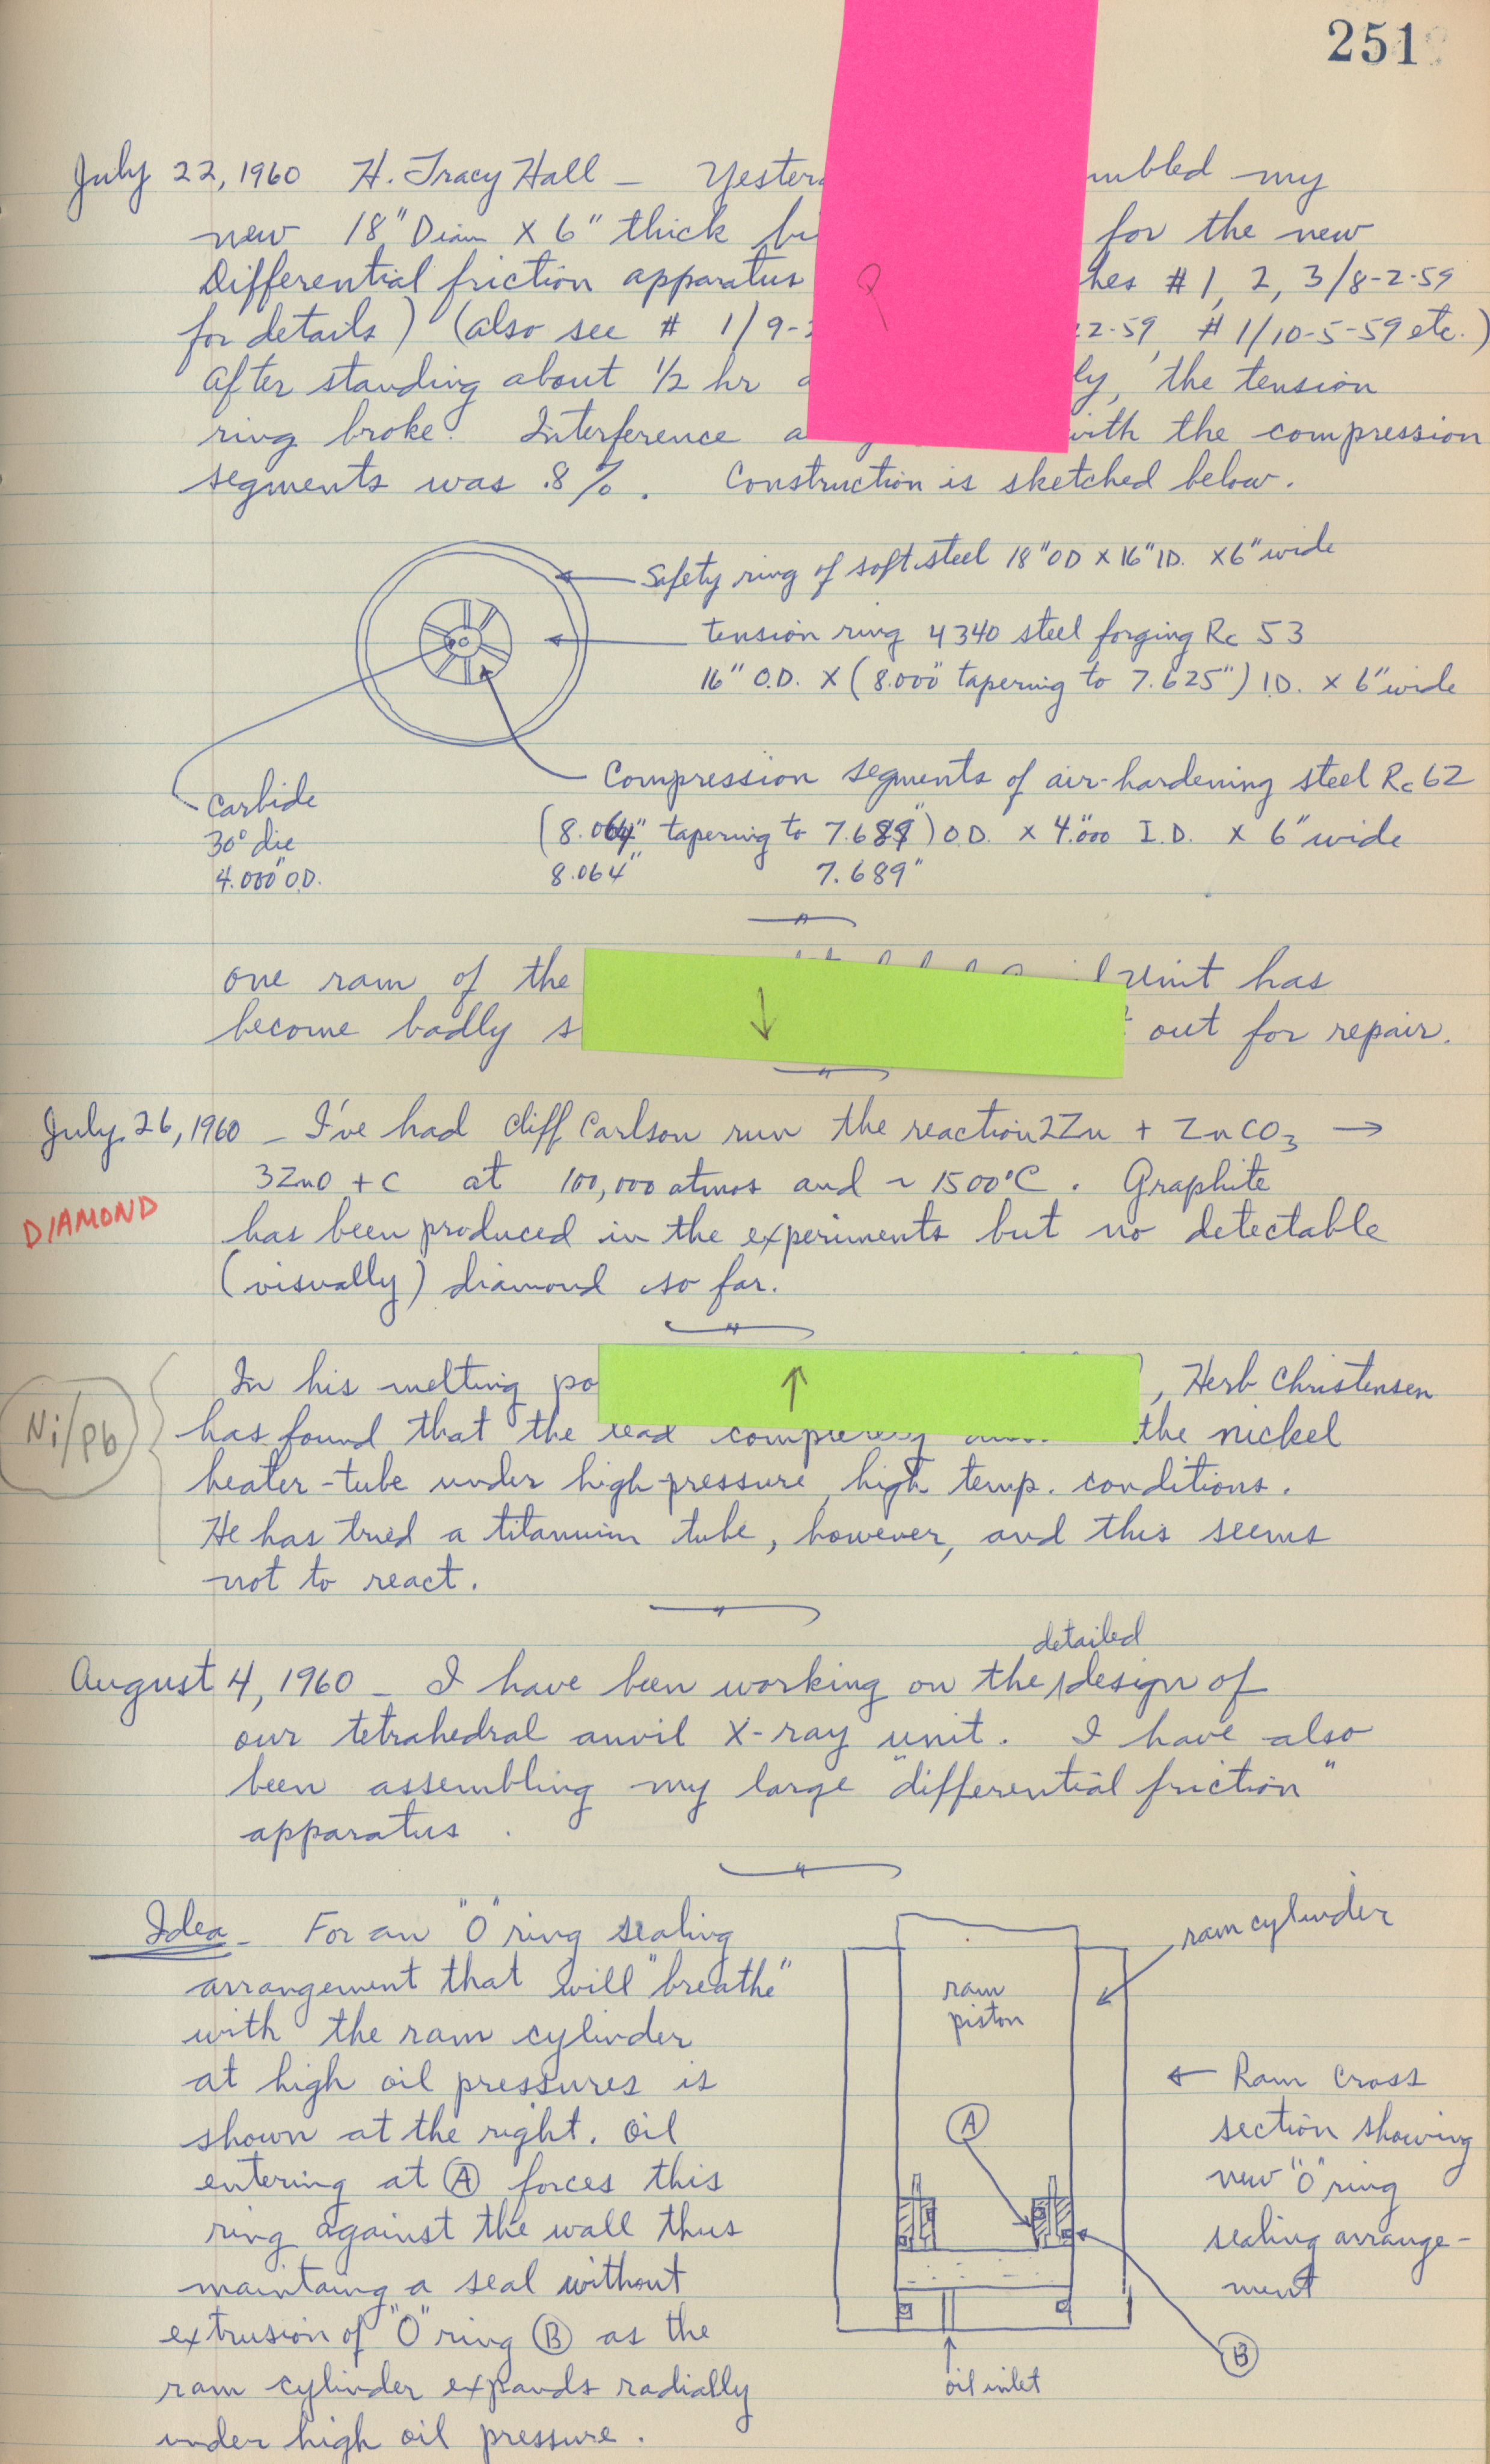 251
July 22, 1960 H. Tracy Hall - my
new 18" Diam X 6" thick for the new
Differential friction apparatus # 1, 2, 3/8-2-59
for details) (also see # 1/9- 2-59, # 1/10-5-59 etc.)
After standing about 1/2 hr the tension
ring broke. Interference with the compression
segments was .8%. Construction is sketched below.
Safety ring of soft steel 18" OD X 16" ID. X 6" wide
tension ring 4340 steel forging Rc 53
16" O.D. X (8.000" tapering to 7.625") I.D. X 6" wide
Compression segments of air-hardening steel Rc 62
(8.064" tapering to 7.689") O.D. X 4.000" I.D. X 6" wide
8.064" 7.689"
Carbide
30° die
4.000" O.D.
one ram of the unit has
become badly out for repair.
July 26, 1960 - I've had Cliff Carlson run the reaction 2Zn + ZnCO3 →
3ZnO + C at 100,000 atmos and ~ 1500°C. Graphite
DIAMOND
has been produced in the experiments but no detectable
(visually) diamond so far.
In his melting , Herb Christensen
Ni/Pb
has found that the lead completely the nickel
heater-tube under high-pressure, high temp. conditions.
He has tried a titanium tube, however, and this seems
not to react.
detailed
August 4, 1960 - I have been working on the design of
our tetrahedral anvil X-ray unit. I have also
been assembling my large "differential friction"
apparatus.
Idea - For an "O" ring sealing
arrangement that will "breathe"
with the ram cylinder
at high oil pressures is
shown at the right. Oil
entering at A forces this
ring against the wall thus
maintaing a seal without
extrusion of "O" ring B as the
ram cylinder expands radially
under high oil pressure.
ram cylinder
ram
piston
A
← Ram cross
section showing
new "O" ring
sealing arrange-
ment
B
oil inlet